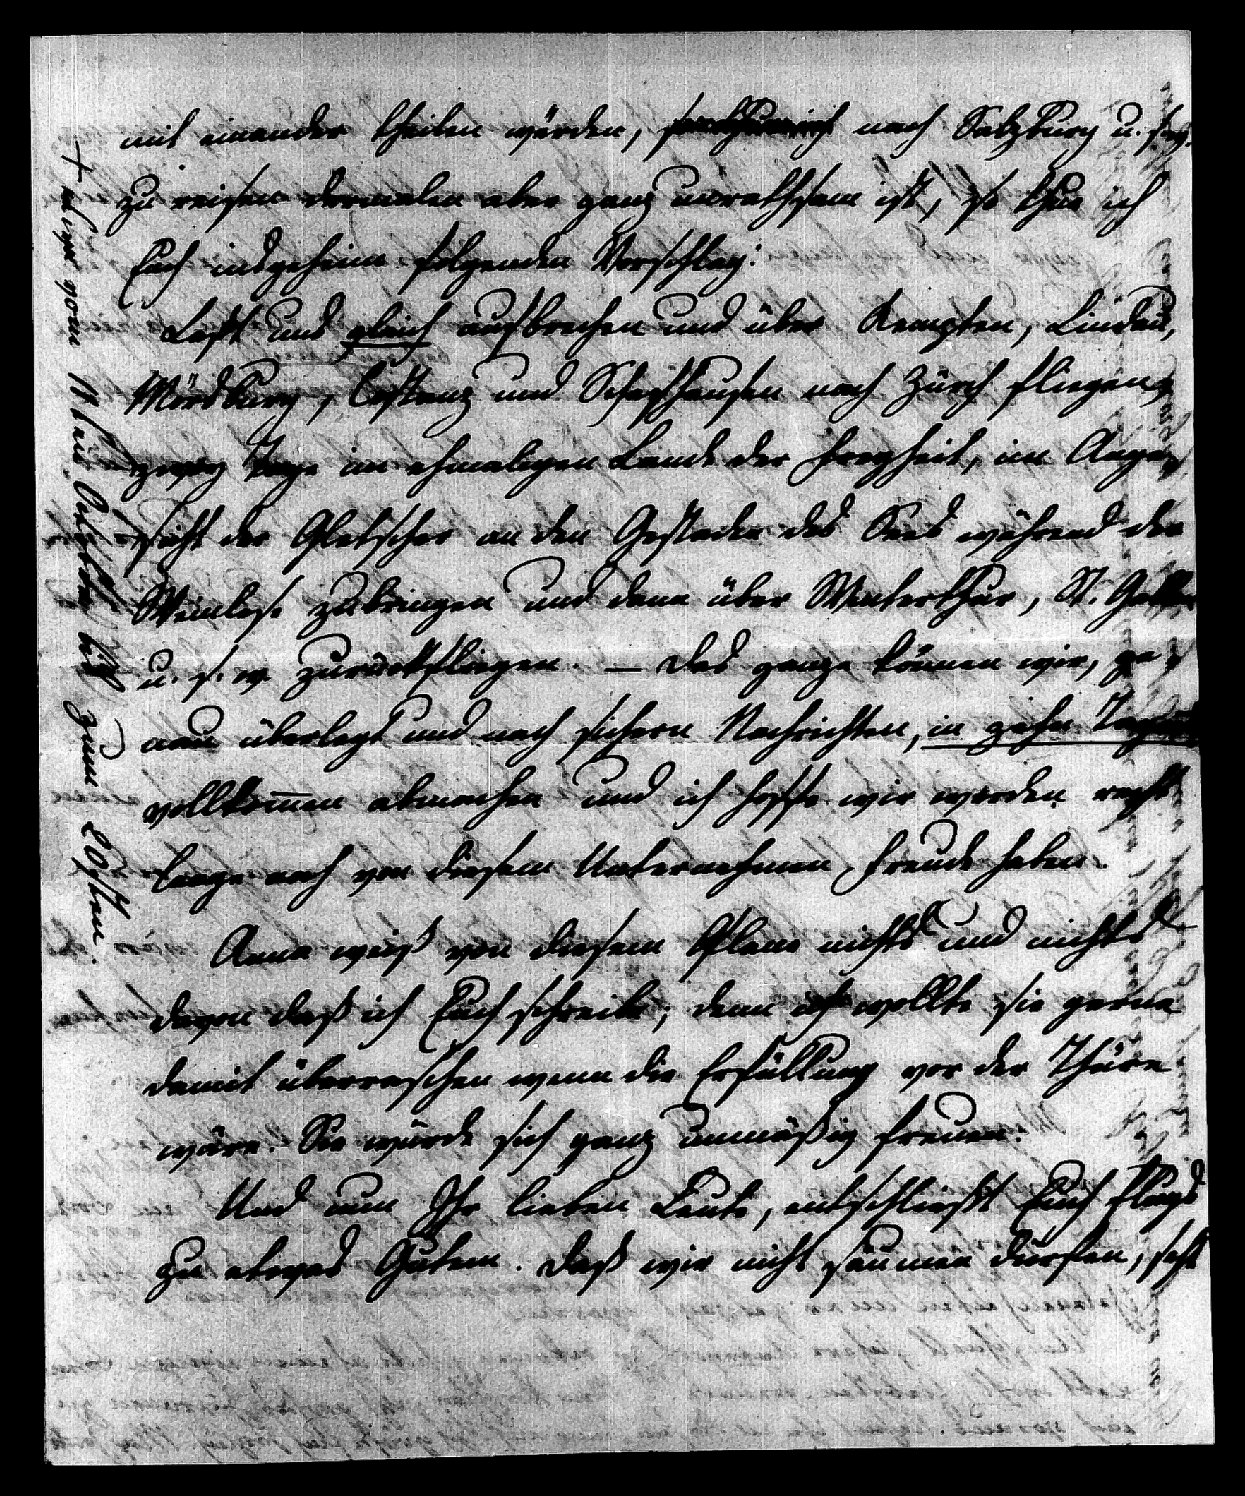 mit einander theilen würden, nach Salzburg u. s. w.
zu reisen dermalen aber ganz unrathsam ist, so thue ich
Euch insgeheim folgenden Vorschlag:
Laßt uns gleich aufbrechen und über Kempten, Lindau,
Mörsburg, Costanz und Schafhausen nach Zürch fliegen,
zwey Tage im ehmaligen Lande der Freyheit, im Ange-
sicht der Gletscher an den Gestaden des Sees während der
Weinlese zubringen und dann über Winterthur, St. Gallen
u. s. w. zurückfliegen. — Das ganze können wir, ge-
nau überlegt und nach sichern Nachrichten, in zehn Tagen
vollkom̅en abmachen und ich hoffe wir werden recht
lange noch von diesem Unternehmen Freude haben.
Anna weiß von diesem Plane nichts und nichts
davon daß ich Euch schreibe; denn ich wollte sie gerne
damit überraschen wenn die Erfüllung vor der Thüre
wäre. Sie würde sich ganz unmäßig freuen.
Und nun Ihr lieben Leute, entschließt Euch flugs
zu etwas Gutem. Daß wir nicht säumen dürfen, seht
+ also vom 11ten October bis zum 20sten.